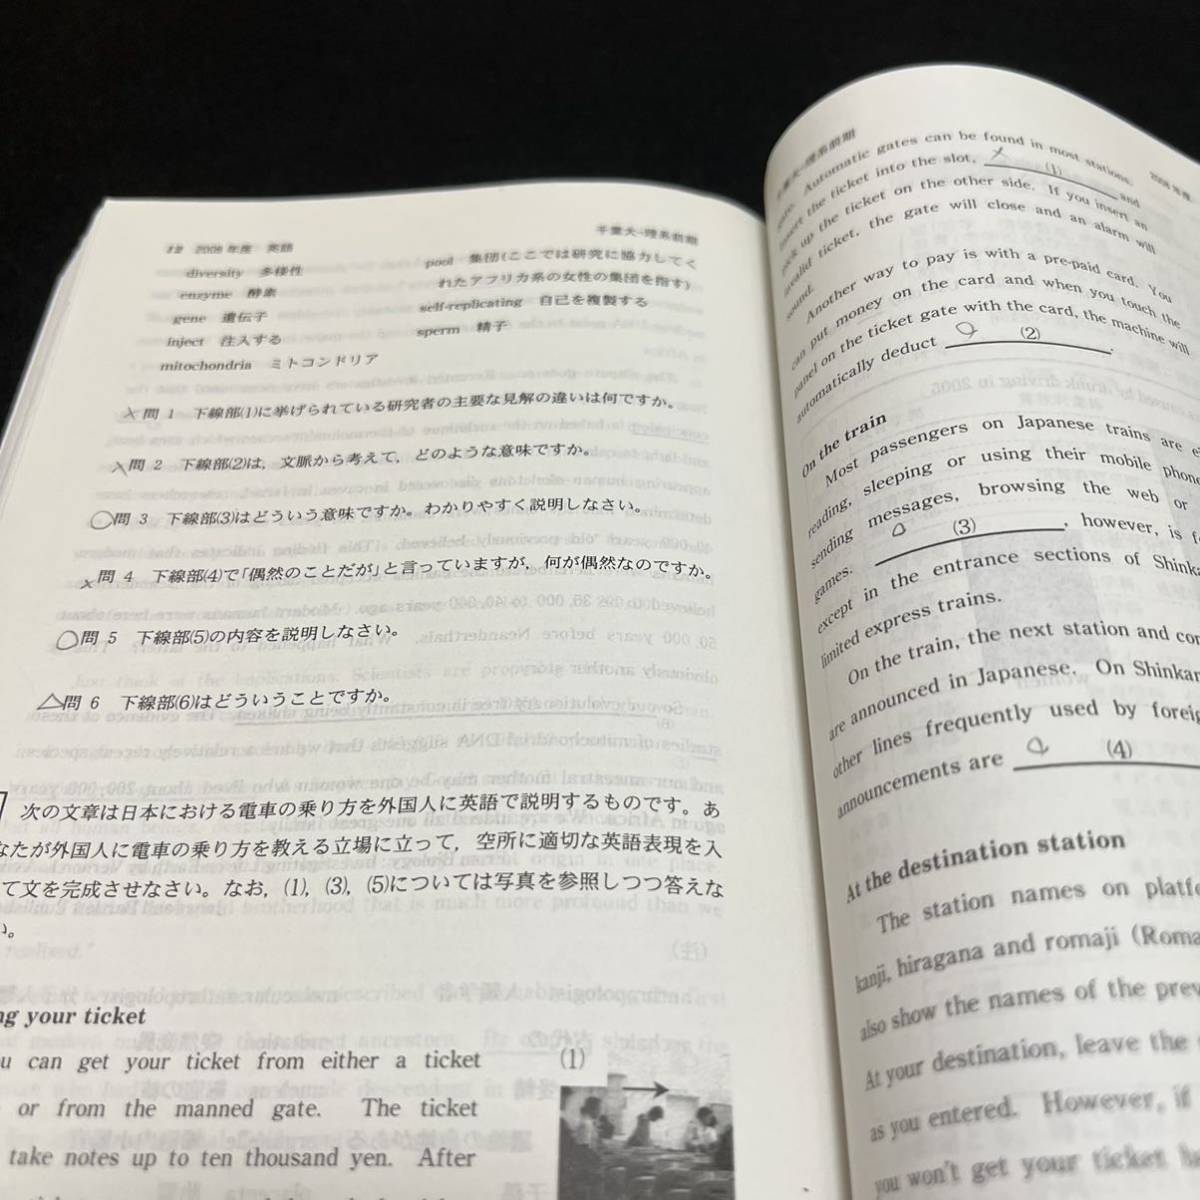 12 2008年度 英語
千葉大-理系前期
diversity 多様性
enzyme 酵素
gene 遺伝子
inject 注入する
mitochondria ミトコンドリア
pool 集団(ここでは研究に協力してく
れたアフリカ系の女性の集団を指す)
self-replicating 自己を複製する
sperm 精子
問 1 下線部(1)に挙げられている研究者の主要な見解の違いは何ですか。
問 2 下線部(2)は，文脈から考えて，どのような意味ですか。
問 3 下線部(3)はどういう意味ですか。わかりやすく説明しなさい。
問 4 下線部(4)で「偶然のことだが」と言っていますが，何が偶然なのですか。
問 5 下線部(5)の内容を説明しなさい。
問 6 下線部(6)はどういうことですか。
次の文章は日本における電車の乗り方を外国人に英語で説明するものです。あ
なたが外国人に電車の乗り方を教える立場に立って，空所に適切な英語表現を入
て文を完成させなさい。なお，(1)，(3)，(5)については写真を参照しつつ答えな
い。
ng your ticket
u can get your ticket from either a ticket
or from the manned gate. The ticket
take notes up to ten thousand yen. After
(1)
千葉大-理系前期
2008年度
Automatic gates can be found in most stations.
insert the ticket into the slot, (1) and
pick up the ticket on the other side. If you insert an
invalid ticket, the gate will close and an alarm will
sound.
Another way to pay is with a pre-paid card. You
can put money on the card and when you touch the
panel on the ticket gate with the card, the machine will
automatically deduct (2) .
On the train
Most passengers on Japanese trains are e
reading, sleeping or using their mobile phone
sending messages, browsing the web or
games. (3) , however, is f
except in the entrance sections of Shinka
limited express trains.
On the train, the next station and con
are announced in Japanese. On Shinkan
other lines frequently used by foreig
announcements are (4)
At the destination station
The station names on platf
kanji, hiragana and romaji (Roma
also show the names of the prev
At your destination, leave the
as you entered. However, if
you won't get your ticket ba